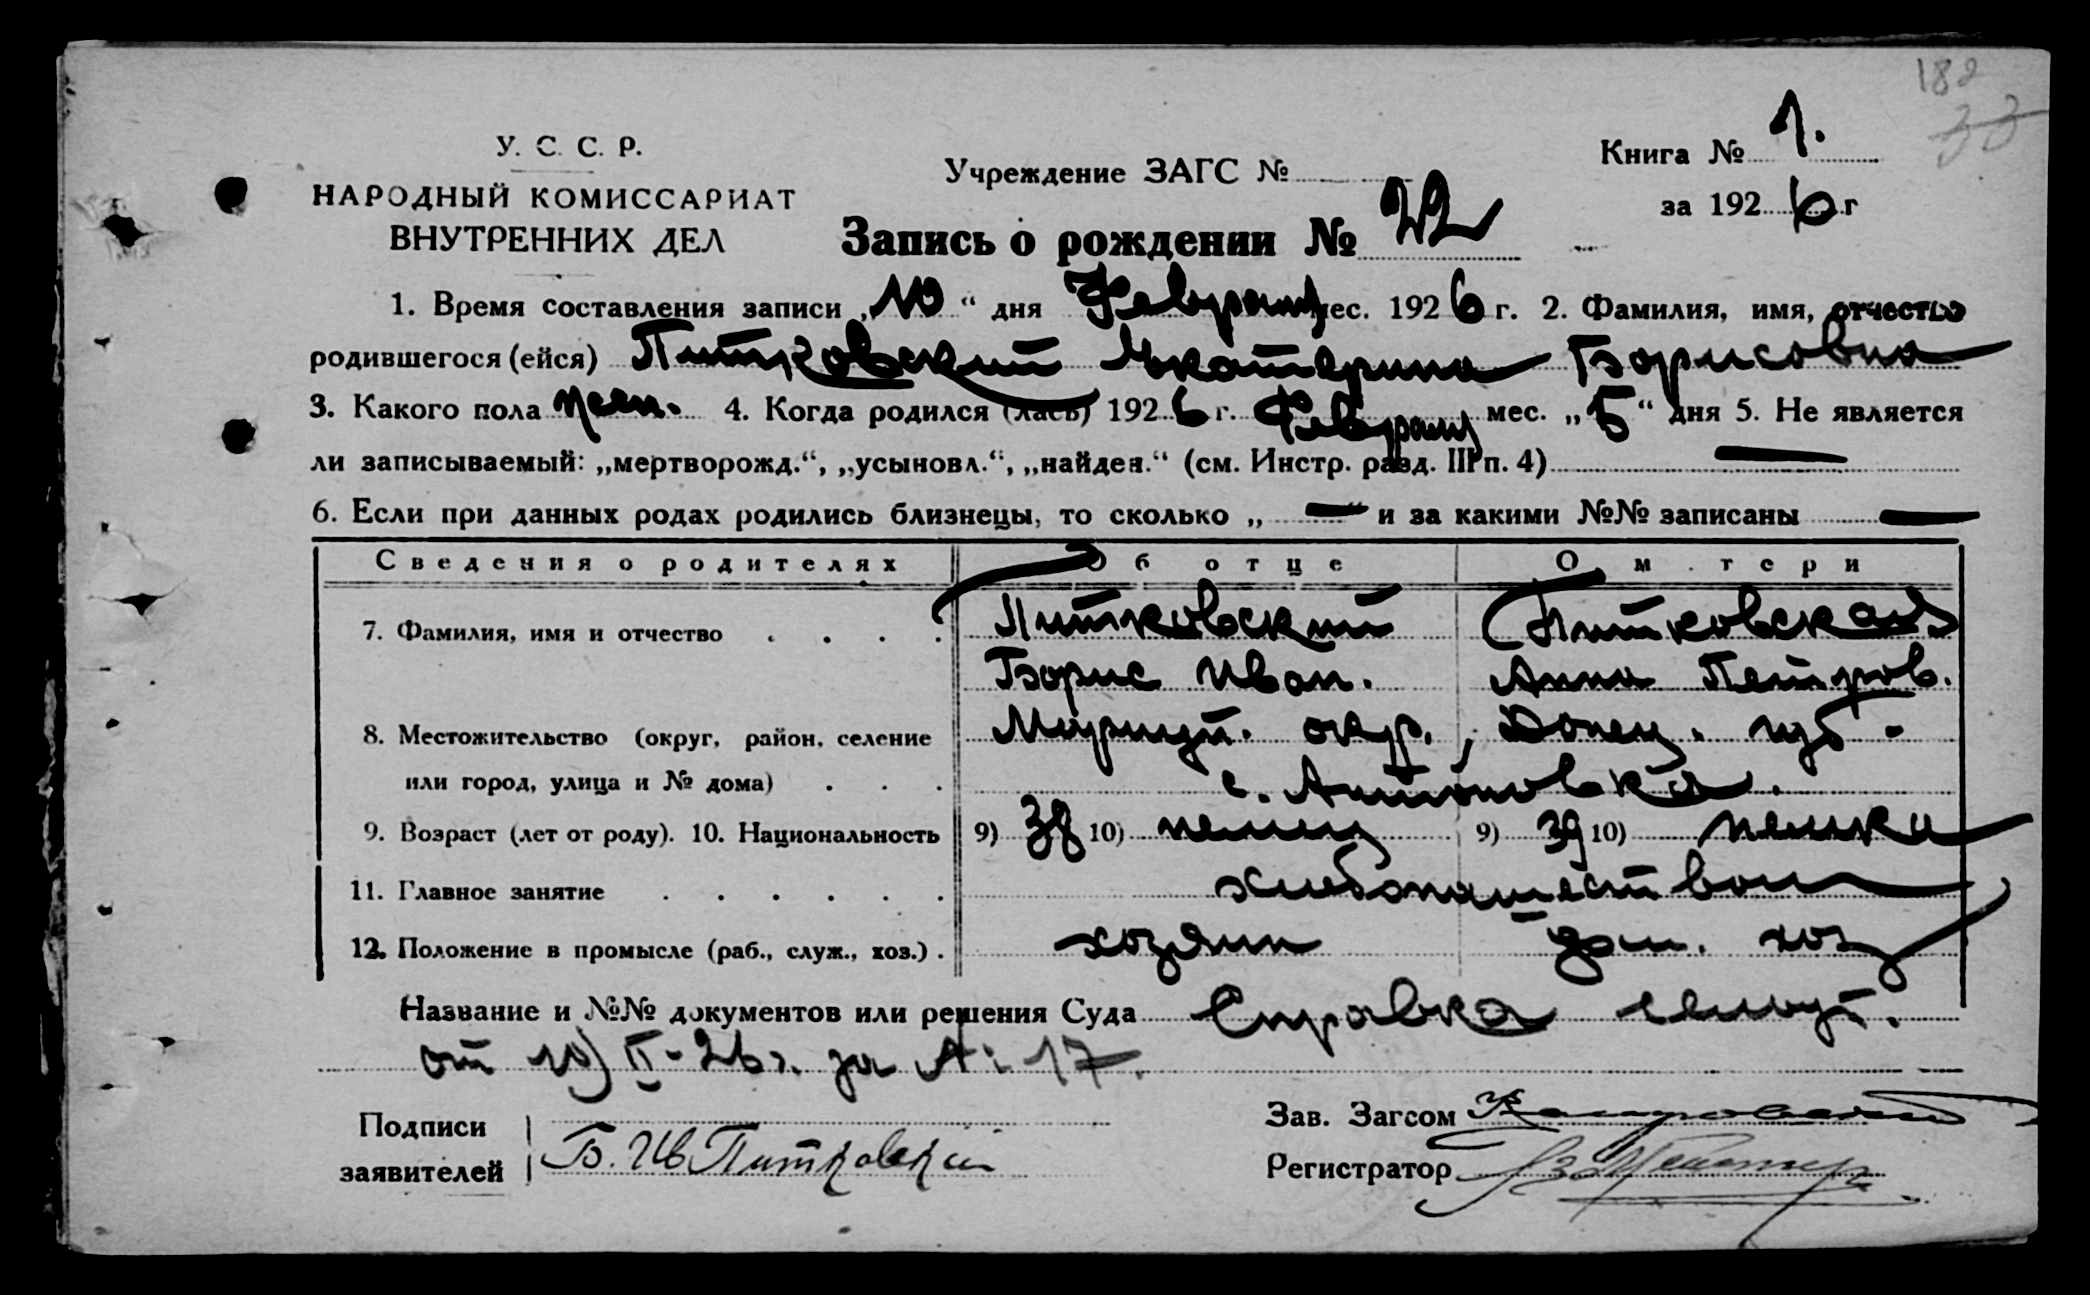 182
33
У. С. С. Р.
НАРОДНЫЙ КОМИССАРИАТ
ВНУТРЕННИХ ДЕЛ
Учреждение ЗАГС №
Книга № 1.
за 1926 г
Запись о рождении № 22
1. Время составления записи „10“ дня Февраля мес. 1926 г. 2. Фамилия, имя, отчество
родившегося (ейся) Питковский Екатерина Борисовна
3. Какого пола жен. 4. Когда родился (лась) 1926 г. Февраля мес. „5“ дня 5. Не является
ли записываемый: „мертворожд.“, „усыновл.“, „найден.“ (см. Инстр. разд. III п. 4) —
6. Если при данных родах родились близнецы, то сколько „ — “ и за какими №№ записаны —
Сведения о родителях Об отце О м тери
7. Фамилия, имя и отчество Питковский Питковская
Борис Иван. Анна Петров.
8. Местожительство (округ, район, селение Мариуп. окр., Донец. губ.
или город, улица и № дома) с. Антоновка.
9. Возраст (лет от роду). 10. Национальность 9) 38 10) немец 9) 39 10) немка
11. Главное занятие хлебопашеством
12. Положение в промысле (раб., служ., хоз.) хозяин дом. хоз
Название и №№ документов или решения Суда Справка сельсут.
от 10/II-26 г. за №: 17.
Подписи
заявителей Б. Ив Питковский
Зав. Загсом
Регистратор